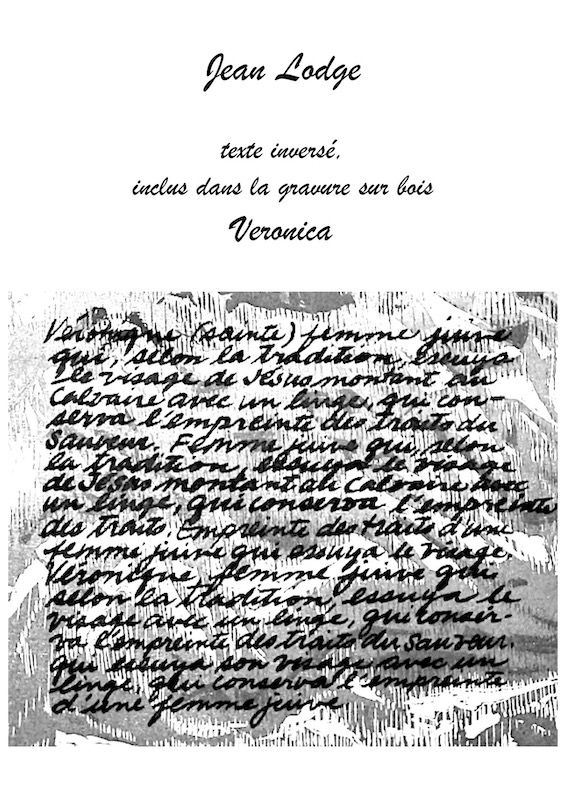 Jean Lodge
texte inversé,
inclus dans la gravure sur bois
Veronica
Veronique (sainte) femme juive
qui, selon la tradition, essuya
le visage de Jésus montant au
Calvaire avec un linge, qui con-
serva l'empreinte des traits du
Sauveur. Femme juive qui, selon
la tradition, essuya le visage
de Jésus montant au Calvaire avec
un linge, qui conserva l'empreinte
des traits, Empreinte des traits d'une
femme juive qui essuya le visage
Veronique femme juive qui
selon la tradition essuya le
visage avec un linge, qui conser-
va l'empreinte des traits du Sauveur.
qui essuya son visage avec un
linge, qui conserva l'empreinte
d'une femme juive